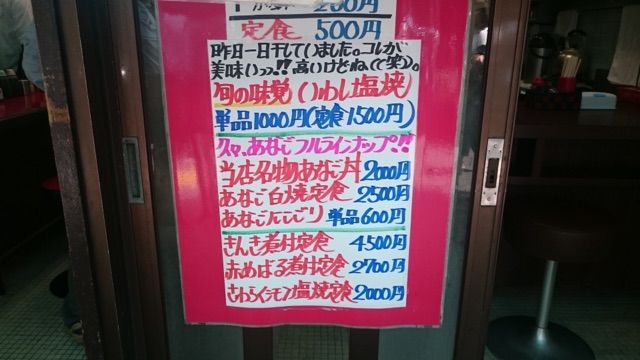 200円
定食 500円
昨日一日干していました。コレが、
美味いっ!!高いけどね(笑)。
旬の味覚(いわし塩焼)
単品1000円(定食1500円)
久々、あなごフルラインナップ!!
当店名物あなご丼 2000円
あなご白焼定食 2500円
あなごにこごり 単品600円
きんき煮付定食 4500円
赤めばる煮付定食 2700円
さわらレモン塩焼定食 2000円